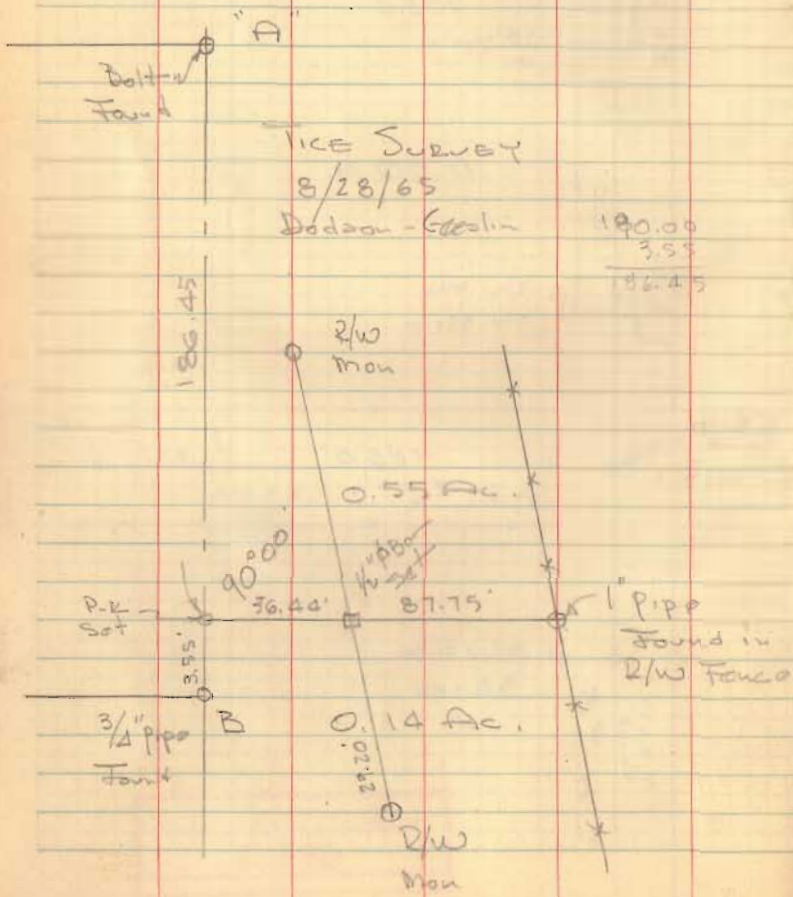 "A"
Bolt
Found
TICE SURVEY
8/28/65
190.00
3.55
186.45
186.45
R/W
Mon
0.55 Ac.
90°00'
1/2"
Set
P-K
Set
36.44'
87.75'
1" pipe
Found in
R/W Fence
3.55'
3/4" pipe
Found
B
0.14 Ac.
R/W
Mon